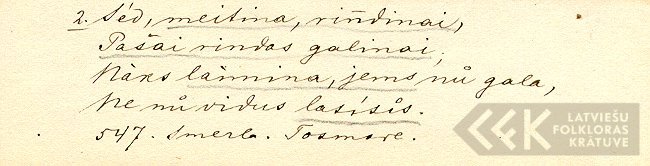 2. Sēd, meitiņa, riņdinai,
Pašai rindas galinai,
Nāks laìmina, jems nů gala,
Ne nů vidus lasísůs.
547. Smerl. Tosmare.
LATVIEŠU
FOLKLORAS
KRĀTUVE